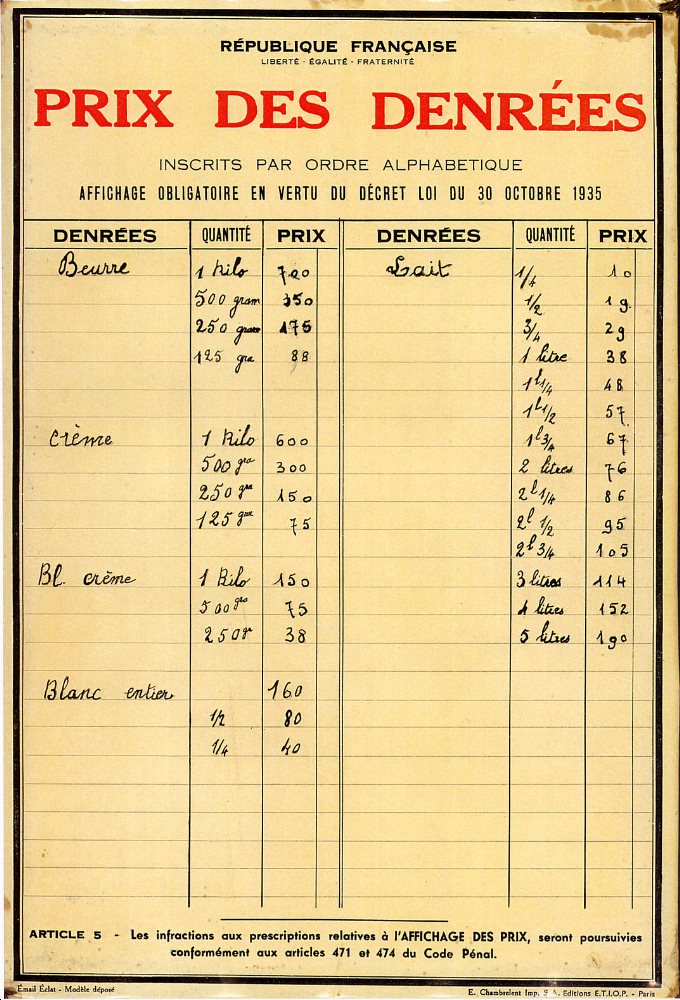 RÉPUBLIQUE FRANÇAISE
LIBERTÉ - ÉGALITÉ - FRATERNITÉ
PRIX DES DENRÉES
INSCRITS PAR ORDRE ALPHABETIQUE
AFFICHAGE OBLIGATOIRE EN VERTU DU DÉCRET LOI DU 30 OCTOBRE 1935
DENRÉES QUANTITÉ PRIX
Beurre 1 kilo 700
500 gram 350
250 gram 175
125 gra 88
crème 1 kilo 600
500 gra 300
250 gr 150
125 gra 75
Bl. crème 1 kilo 150
500 grs 75
250 gr 38
Blanc entier 160
1/2 80
1/4 40
DENRÉES QUANTITÉ PRIX
Lait 1/4 10
1/2 19
3/4 29
1 litre 38
1 l 1/4 48
1 l 1/2 57
1 l 3/4 67
2 litres 76
2 l 1/4 86
2 l 1/2 95
2 l 3/4 105
3 litres 114
4 litres 152
5 litres 190
ARTICLE 5 - Les infractions aux prescriptions relatives à l'AFFICHAGE DES PRIX, seront poursuivies
conformément aux articles 471 et 474 du Code Pénal.
Émail Éclat - Modèle déposé
E. Chambrelent Imp. S. A. Editions E.T.I.O.P. - Paris